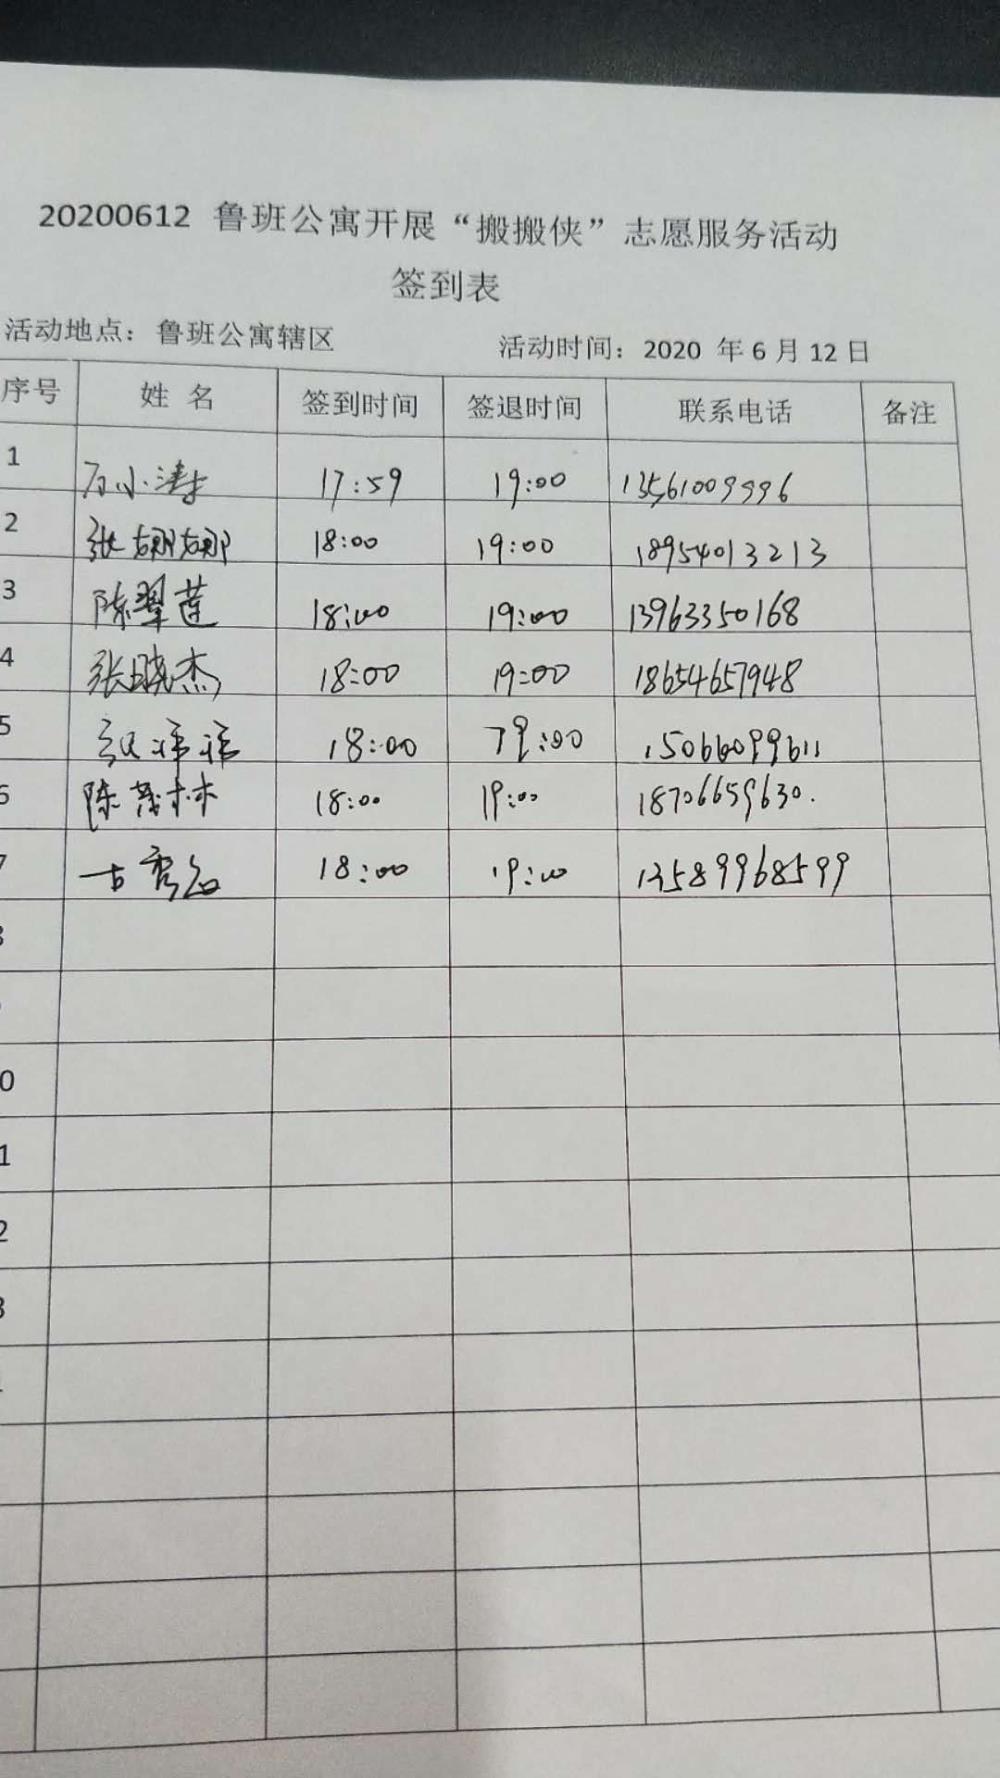 20200612 鲁班公寓开展“搬搬侠”志愿服务活动
签到表
活动地点：鲁班公寓辖区 活动时间：2020 年 6 月 12 日
序号 姓 名 签到时间 签退时间 联系电话 备注
1 石小涛 17:59 19:00 13561009996
2 张娜娜 18:00 19:00 18954013213
3 陈翠莲 18:00 19:00 13963350168
4 张晓杰 18:00 19:00 18654657948
5 18:00 19:00 15066099611
6 陈茂林 18:00 19:00 18706659630.
7 18:00 19:00 13589968599